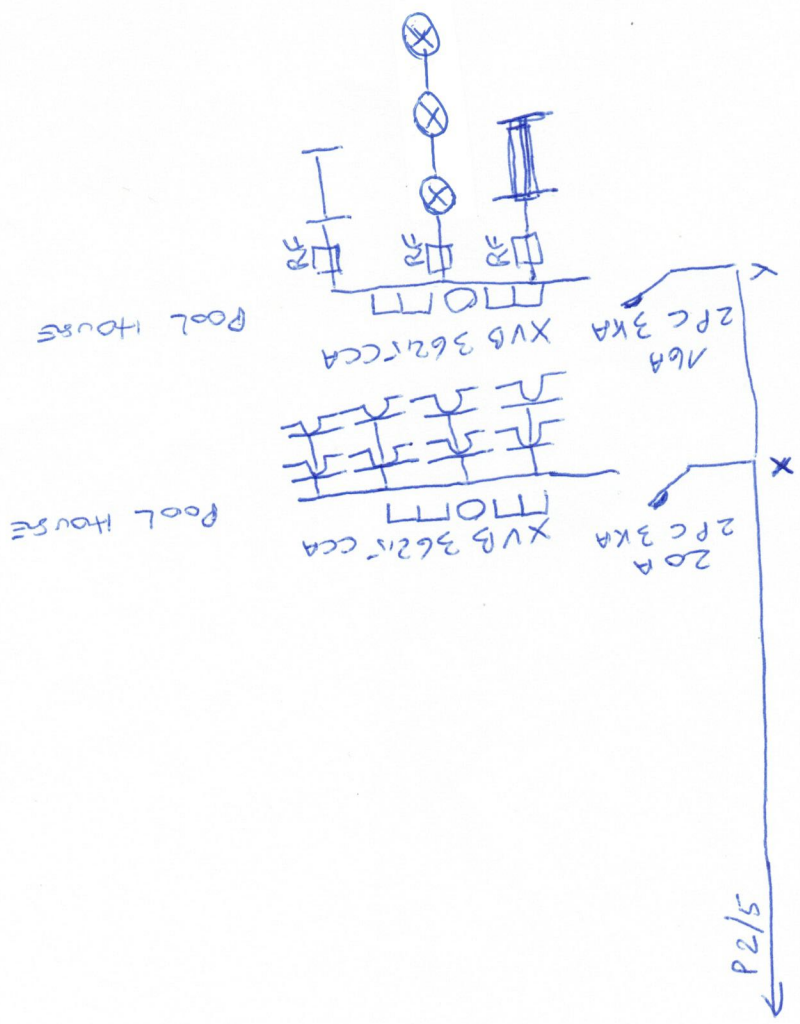 P2/5
20A
2PC 3KA
XVB 3G2,5 CCA
POOL HOUSE
X
16A
2PC 3KA
XVB 3G2,5 CCA
POOL HOUSE
Y